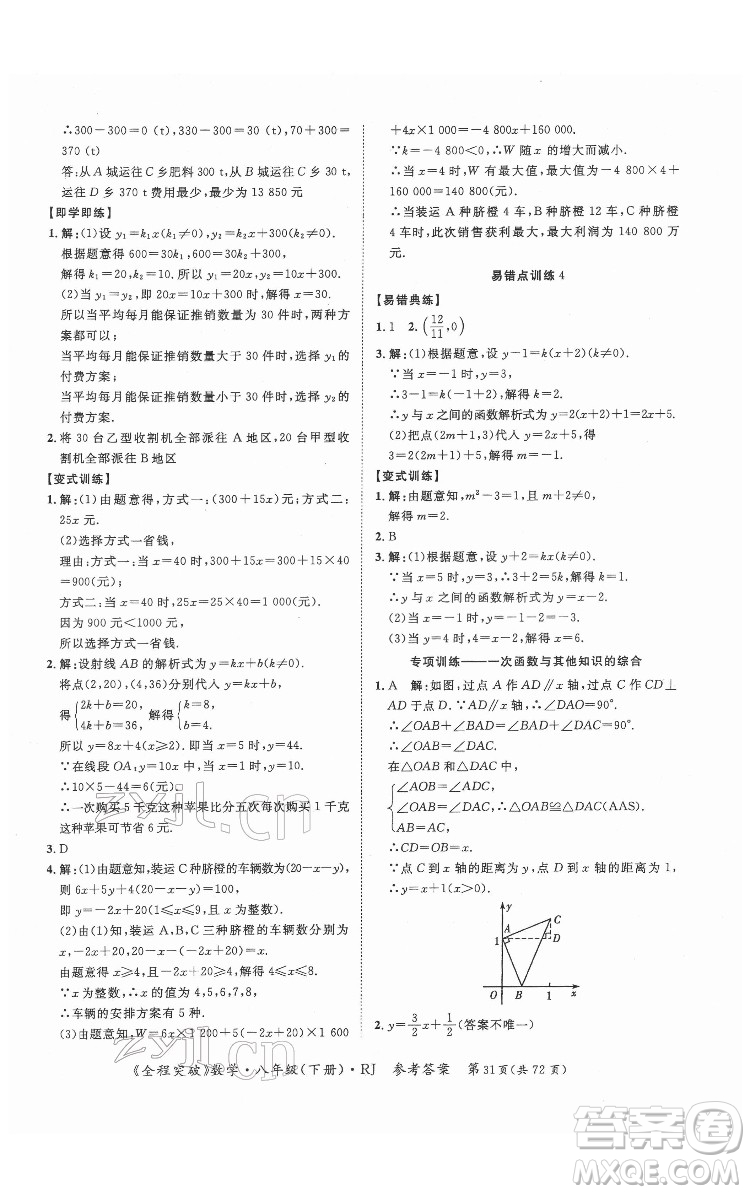 ∴300－300＝0 (t),300－300＝0 (t),70＋300＝
370 (t)
答:从 A 城运往 C 乡肥料 300 t,从 B 城运往
运往 D 乡 370 t 费用最少,最少为 13 850 元
【即学即练】
1. 解:(1)设 y₁＝k₁x(k₁≠0),y₂＝k₂x(k₂≠0).
根据题意得 600＝30k₁,600＝30k₂
解得
(2)当 y₁＝y₂,即 20x＝10x＋300 时,x＝30.
所以当平均每月能保证推销数量为 30 件时,两种方
案都可以;
当平均每月能保证推销数量大于 30 件时,选择 y₁的
付费方案;
当平均每月能保证推销数量小于 30 件时,选择 y₂的
付费方案.
2. 将 30 台乙型收割机全部派往 A 地区,20 台甲型收
割机全部派往 B 地区
【变式训练】
1. 解:(1)由题意得,方式一:(300＋15x)(元);方式二:
25x 元.
(2)选择方式一省钱.
理由:方式一:当 x＝40 时,300＋15x＝300＋15×40
＝900(元);
方式二:当 x＝40 时,25x＝25×40＝1 000(元).
因为 900 元＜1000 元,
所以选择方式一省钱.
2. 解:设射线 AB 的解析式为 y＝kx＋b(k≠0),
将点(2,20),(4,36)分别代入 y＝kx＋b,
得{2k＋b＝20, 4k＋b＝36, 解得{k＝8, b＝4.
所以 y＝8x＋4(x≥2).即当 x＝5 时,y＝44.
∵在线段 OA₁上,当 x＝1 时,y＝10.
∴10×5－44＝6(元)
∴一次购买 5 千克这种苹果比分五次每次购买 1 千克
这种苹果可节省 6 元.
3. D
4. 解:(1)由题意知,装运 C 种脐橙的车辆数为(20－x－y).
则 6x＋5y＋4(20－x－y)＝100.
即 y＝－2x＋20(x 为整数).
(2)由(1)知,装运 A,B,C 三种脐橙的车辆数分别为
x,－2x＋20,x.
由题意得 x≥4,－2x＋20≥4,
解得 4≤x≤8.
∵x 为整数,∴x 的值为 4,5,6,7,8.
∴车辆的安排方案有 5 种.
(3)由题意知,W＝6x×1 200＋5(－2x＋20)×1 600
＋4x×1 000＝－4 800x＋160 000.
∵－4 800＜0,∴W 随 x 的增大而减小.
∴当 x＝4 时,W 有最大值,最大值为－4 800×4＋
160 000＝140 800(元).
∴当装运 A 种脐橙 4 车,B 种脐橙 12 车,C 种脐橙
4 车时,此次销售获利最大,最大利润为 140 800
元.
易错点训练 4
【易错典练】
1. 1 2. (12/11,0)
3. 解:(1)根据题意,设 y－1＝k(x＋2)(k≠0).
∵当 x＝－1 时,y＝3,
∴3－1＝k(－1＋2),解得 k＝2.
∴y 与 x 之间的函数解析式为 y＝2(x＋2)＋1＝2x＋5.
(2)把点(2,3)代入
【变式训练】
1. 解:由题意知,m²－3＝1,
解得 m＝2.
2. B
3. 解:(1)根据题意,设 y＋2＝kx(k≠0).
∵当 x＝5 时,y＝3,∴3＋2＝5k,解得 k＝1.
∴y 与 x 之间的函数解析式为 y＝x－2.
(2)当 x＝
(3)当 y＝4 时,4＝x－2,解得 x＝6.
专项训练——一次函数与其他知识的综合
1. A 解:如图,过点 A 作 AD∥x 轴,过点 C 作 CD⊥
AD 于点 D.∵AD∥x 轴,∴∠OAD＝90°.
∴∠OAB＋∠BAD＝∠BAD＋∠DAC＝90°.
∴∠OAB＝∠DAC.
在△OAB 和△DAC 中,
∠AOB＝∠ADC,
∠OAB＝∠DAC,
∴△OAB≌△DAC(AAS).
∴CD＝OB＝x.
∵点 C 到 x 轴的距离为 y,点 D 到 x 轴的距离为
∴y＝x＋1.
y
A
C
1
D
O
B
1
x
2. y＝3/2x＋1/2(答案不唯一)
《全程突破》数学·八年级(下册)·RJ 参考答案 第31页(共72页)
zyjl.cn
zyjl.cn
答案圈
MXQE.COM